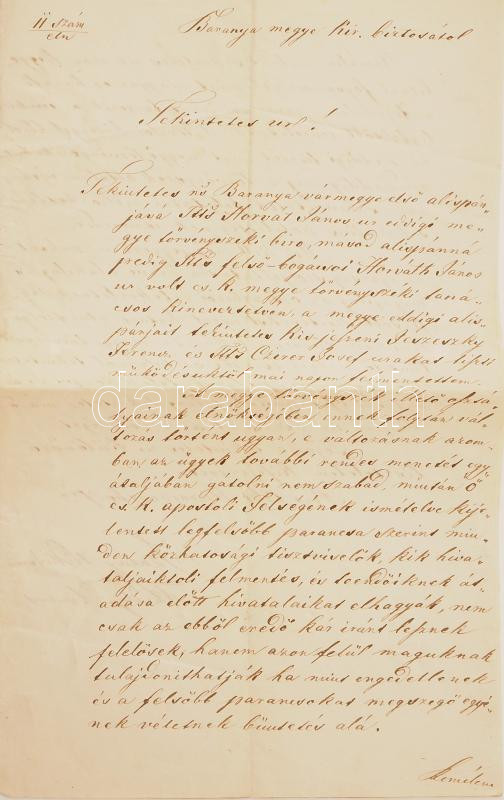 11 szám
eln
Baranya megye kir. biztosától
Tekintetes ur!
Tekintetes ns Baranya vármegye első alispán-
jává Ttts Horvát János ur eddigi me-
gye törvényszéki biró, másod alispánná
pedig Ttts felső-bogáusi Horváth János
ur volt cs. k. megye törvényszéki taná-
csos kineveztetvén, a megye eddigi alis-
pánjait tekintetes kis-jeszeni Jeszeszky
Ferenc, és Ttts Czirer József urakat ezen
működésüktől mai napon felmentettem.
A megye törvényszék első osztá-
lyainak elnökségében ennek folytán vál-
tozás történt ugyan, e változásnak azon-
ban az ügyek további rendes menetét egy-
átaljában gátolni nem szabad, miután Ő
cs. k. apostoli Felségének ismételve kije-
lentett legfelsőbb parancsa szerint min-
den közhatósági tisztviselők, kik hiva-
taljaiktoli felmentés, és teendőiknek át-
adása előtt hivatalaikat elhagyák, nem
csak az ebből eredő kár iránt lesznek
felelősek, hanem azon felül maguknak
tulajdonithatják ha mint engedetlenek
és a felsőbb parancsokat megszegő egyé-
nek vétetnek büntetés alá.
Remélem
darabanth